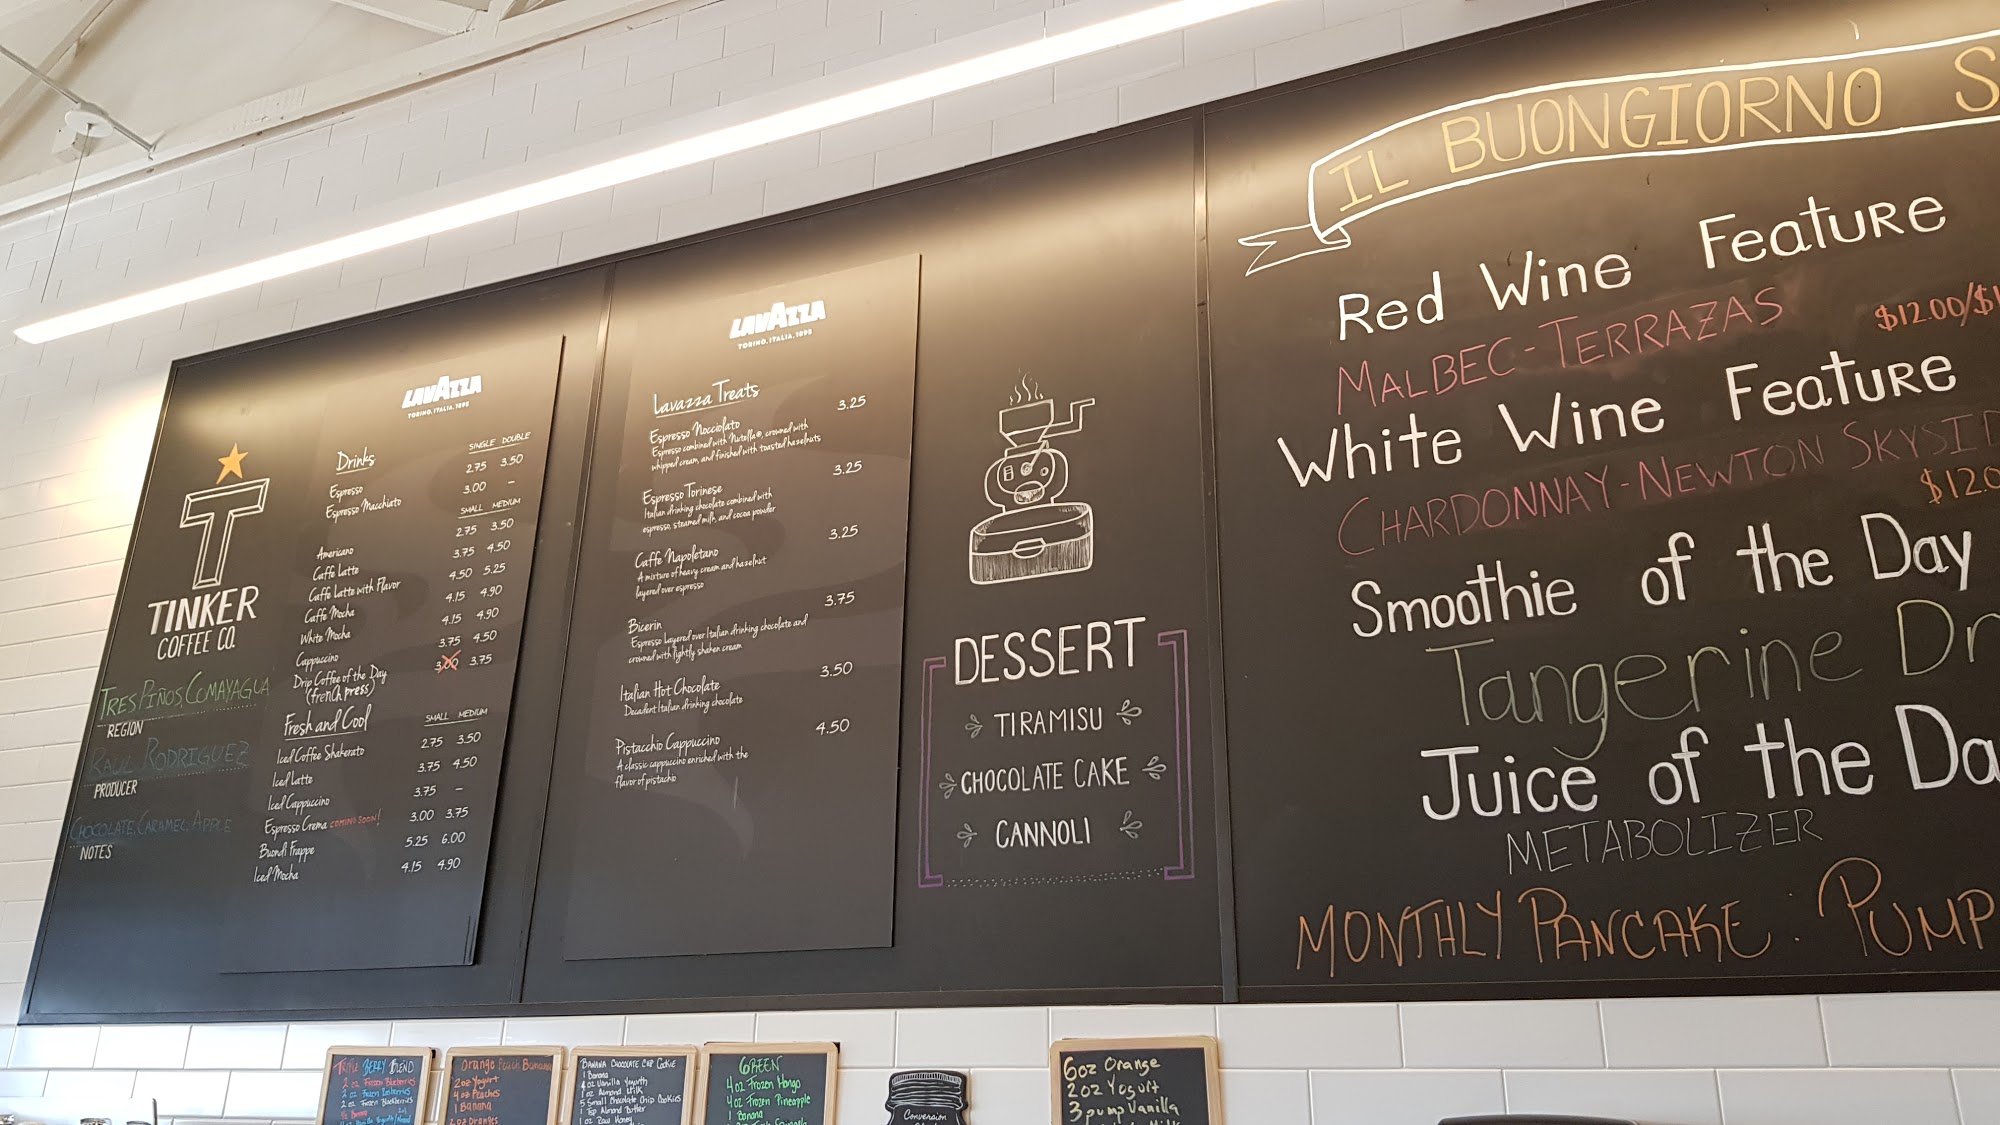 TINKER
COFFEE CO.
TRES PIÑOS, COMAYAGUA
REGION
RAUL RODRIGUEZ
PRODUCER
CHOCOLATE, CARAMEL, APPLE
NOTES
LAVAZZA
TORINO, ITALIA, 1895
Drinks SINGLE DOUBLE
Espresso 2.75 3.50
Espresso Macchiato 3.00 –
SMALL MEDIUM
Americano 2.75 3.50
Caffe Latte 3.75 4.50
Caffe Latte with Flavor 4.50 5.25
Caffe Mocha 4.15 4.90
White Mocha 4.15 4.90
Cappuccino 3.75 4.50
Drip Coffee of the Day 3.00 3.75
(french press)
Fresh and Cool SMALL MEDIUM
Iced Coffee Shakerato 2.75 3.50
Iced Latte 3.75 4.50
Iced Cappuccino 3.75 –
Espresso Crema COMING SOON! 3.00 3.75
Buondi Frappe 5.25 6.00
Iced Mocha 4.15 4.90
LAVAZZA
TORINO, ITALIA, 1895
Lavazza Treats
Espresso Nocciolato 3.25
Espresso combined with Nutella®, crowned with
whipped cream, and finished with toasted hazelnuts
Espresso Torinese 3.25
Italian drinking chocolate combined with
espresso, steamed milk, and cocoa powder
Caffe Napoletano 3.25
A mixture of heavy cream and hazelnut
layered over espresso
Bicerin 3.75
Espresso layered over Italian drinking chocolate and
crowned with lightly shaken cream
Italian Hot Chocolate 3.50
Decadent Italian drinking chocolate
Pistacchio Cappuccino 4.50
A classic cappuccino enriched with the
flavor of pistachio
DESSERT
TIRAMISU
CHOCOLATE CAKE
CANNOLI
IL BUONGIORNO S
Red Wine Feature
MALBEC - TERRAZAS $12.00/$
White Wine Feature
CHARDONNAY - NEWTON SKYSID
$12.0
Smoothie of the Day
Tangerine Dr
Juice of the Da
METABOLIZER
MONTHLY PANCAKE: PUMP
TRIPLE BERRY BLEND
2 oz Frozen Blueberries
2 oz Frozen
2 oz Frozen Blackberries
Banana
Orange Peach Banana
2oz Yogurt
4oz Peaches
1 Banana
2oz Oranges
BANANA CHOCOLATE CHIP COOKIE
1 Banana
4 oz Vanilla Yogurt
1 oz Almond Milk
5 Small Chocolate Chip Cookies
1 Tsp Almond Butter
1 oz Raw Honey
GREEN
4 oz Frozen Mango
4 oz Frozen Pineapple
1 Banana
Conversion
6oz Orange
2oz Yogurt
3 pump Vanilla